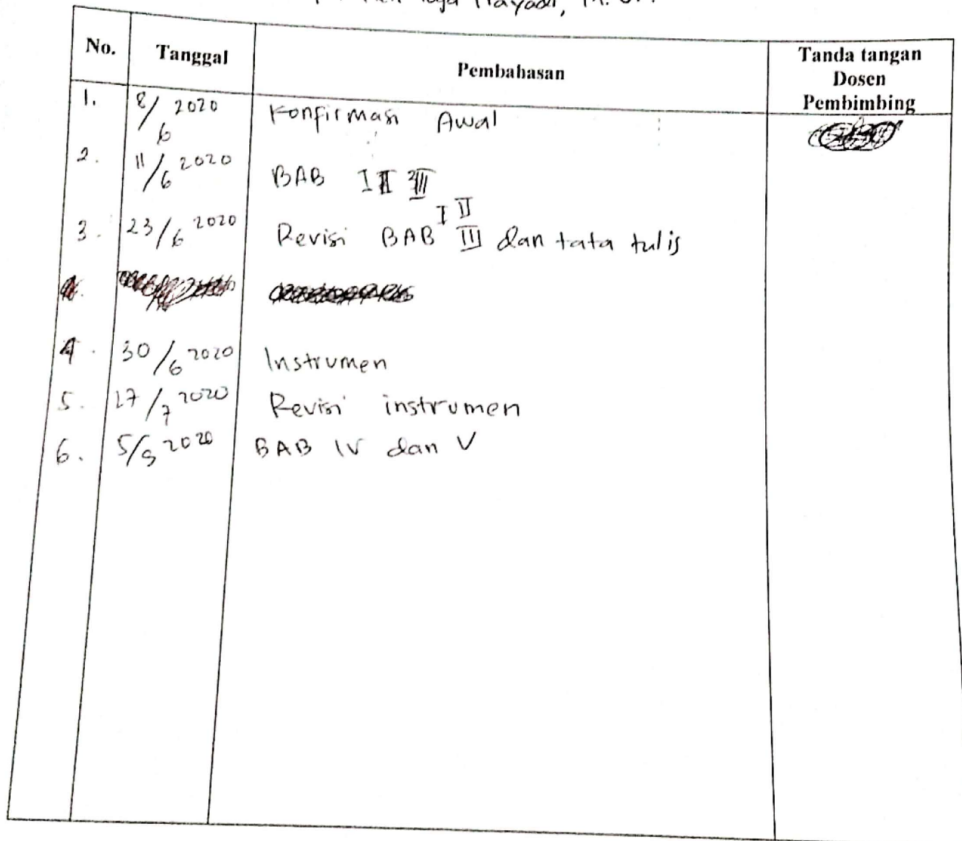 Hayadi, M.
No. Tanggal Pembahasan Tanda tangan Dosen Pembimbing
1. 8/6 2020 Konfirmasi Awal
2. 11/6 2020 BAB I II III
3. 23/6 2020 Revisi BAB I II III dan tata tulis
4. 30/6 2020 Instrumen
5. 27/7 2020 Revisi instrumen
6. 5/9 2020 BAB IV dan V